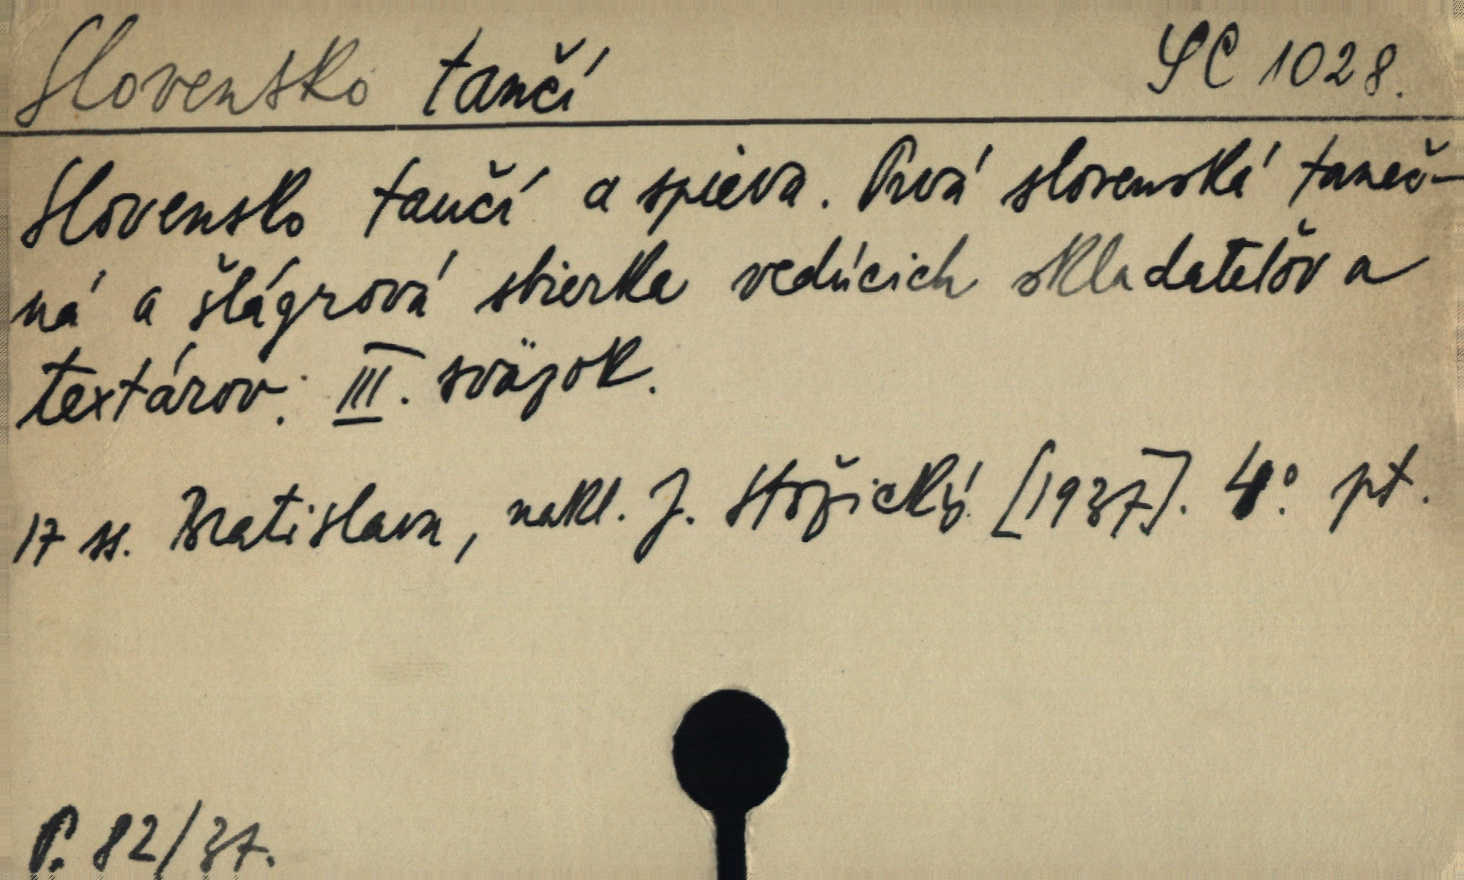 Slovensko tančí SC 1028.
Slovensko tančí a spieva. Prvá slovenská taneč-
ná a šlágrová sbierka vedúcich skladateľov a
textárov. III. sväzok.
17 ss. Bratislava, nakl. J. Stožický. [1937]. 4°. pt.
P. 82/37.